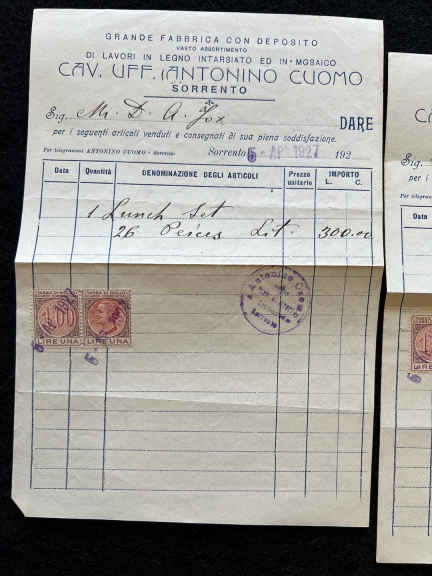 GRANDE FABBRICA CON DEPOSITO
VASTO ASSORTIMENTO
DI LAVORI IN LEGNO INTARSIATO ED IN MOSAICO
CAV. UFF. ANTONINO CUOMO
SORRENTO
Sig. Mr. D. A. Fox DARE
per i seguenti articoli venduti e consegnati di sua piena soddisfazione.
Per telegrammi ANTONINO CUOMO - Sorrento Sorrento 5 - APR 1927 192
Data Quantità DENOMINAZIONE DEGLI ARTICOLI Prezzo unitario IMPORTO L. C.
1 Lunch Set
26 Peices Lit. 300.00
LIRE UNA LIRE UNA
Antonino Cuomo
Sig.
per i
Per telegrammi
Data